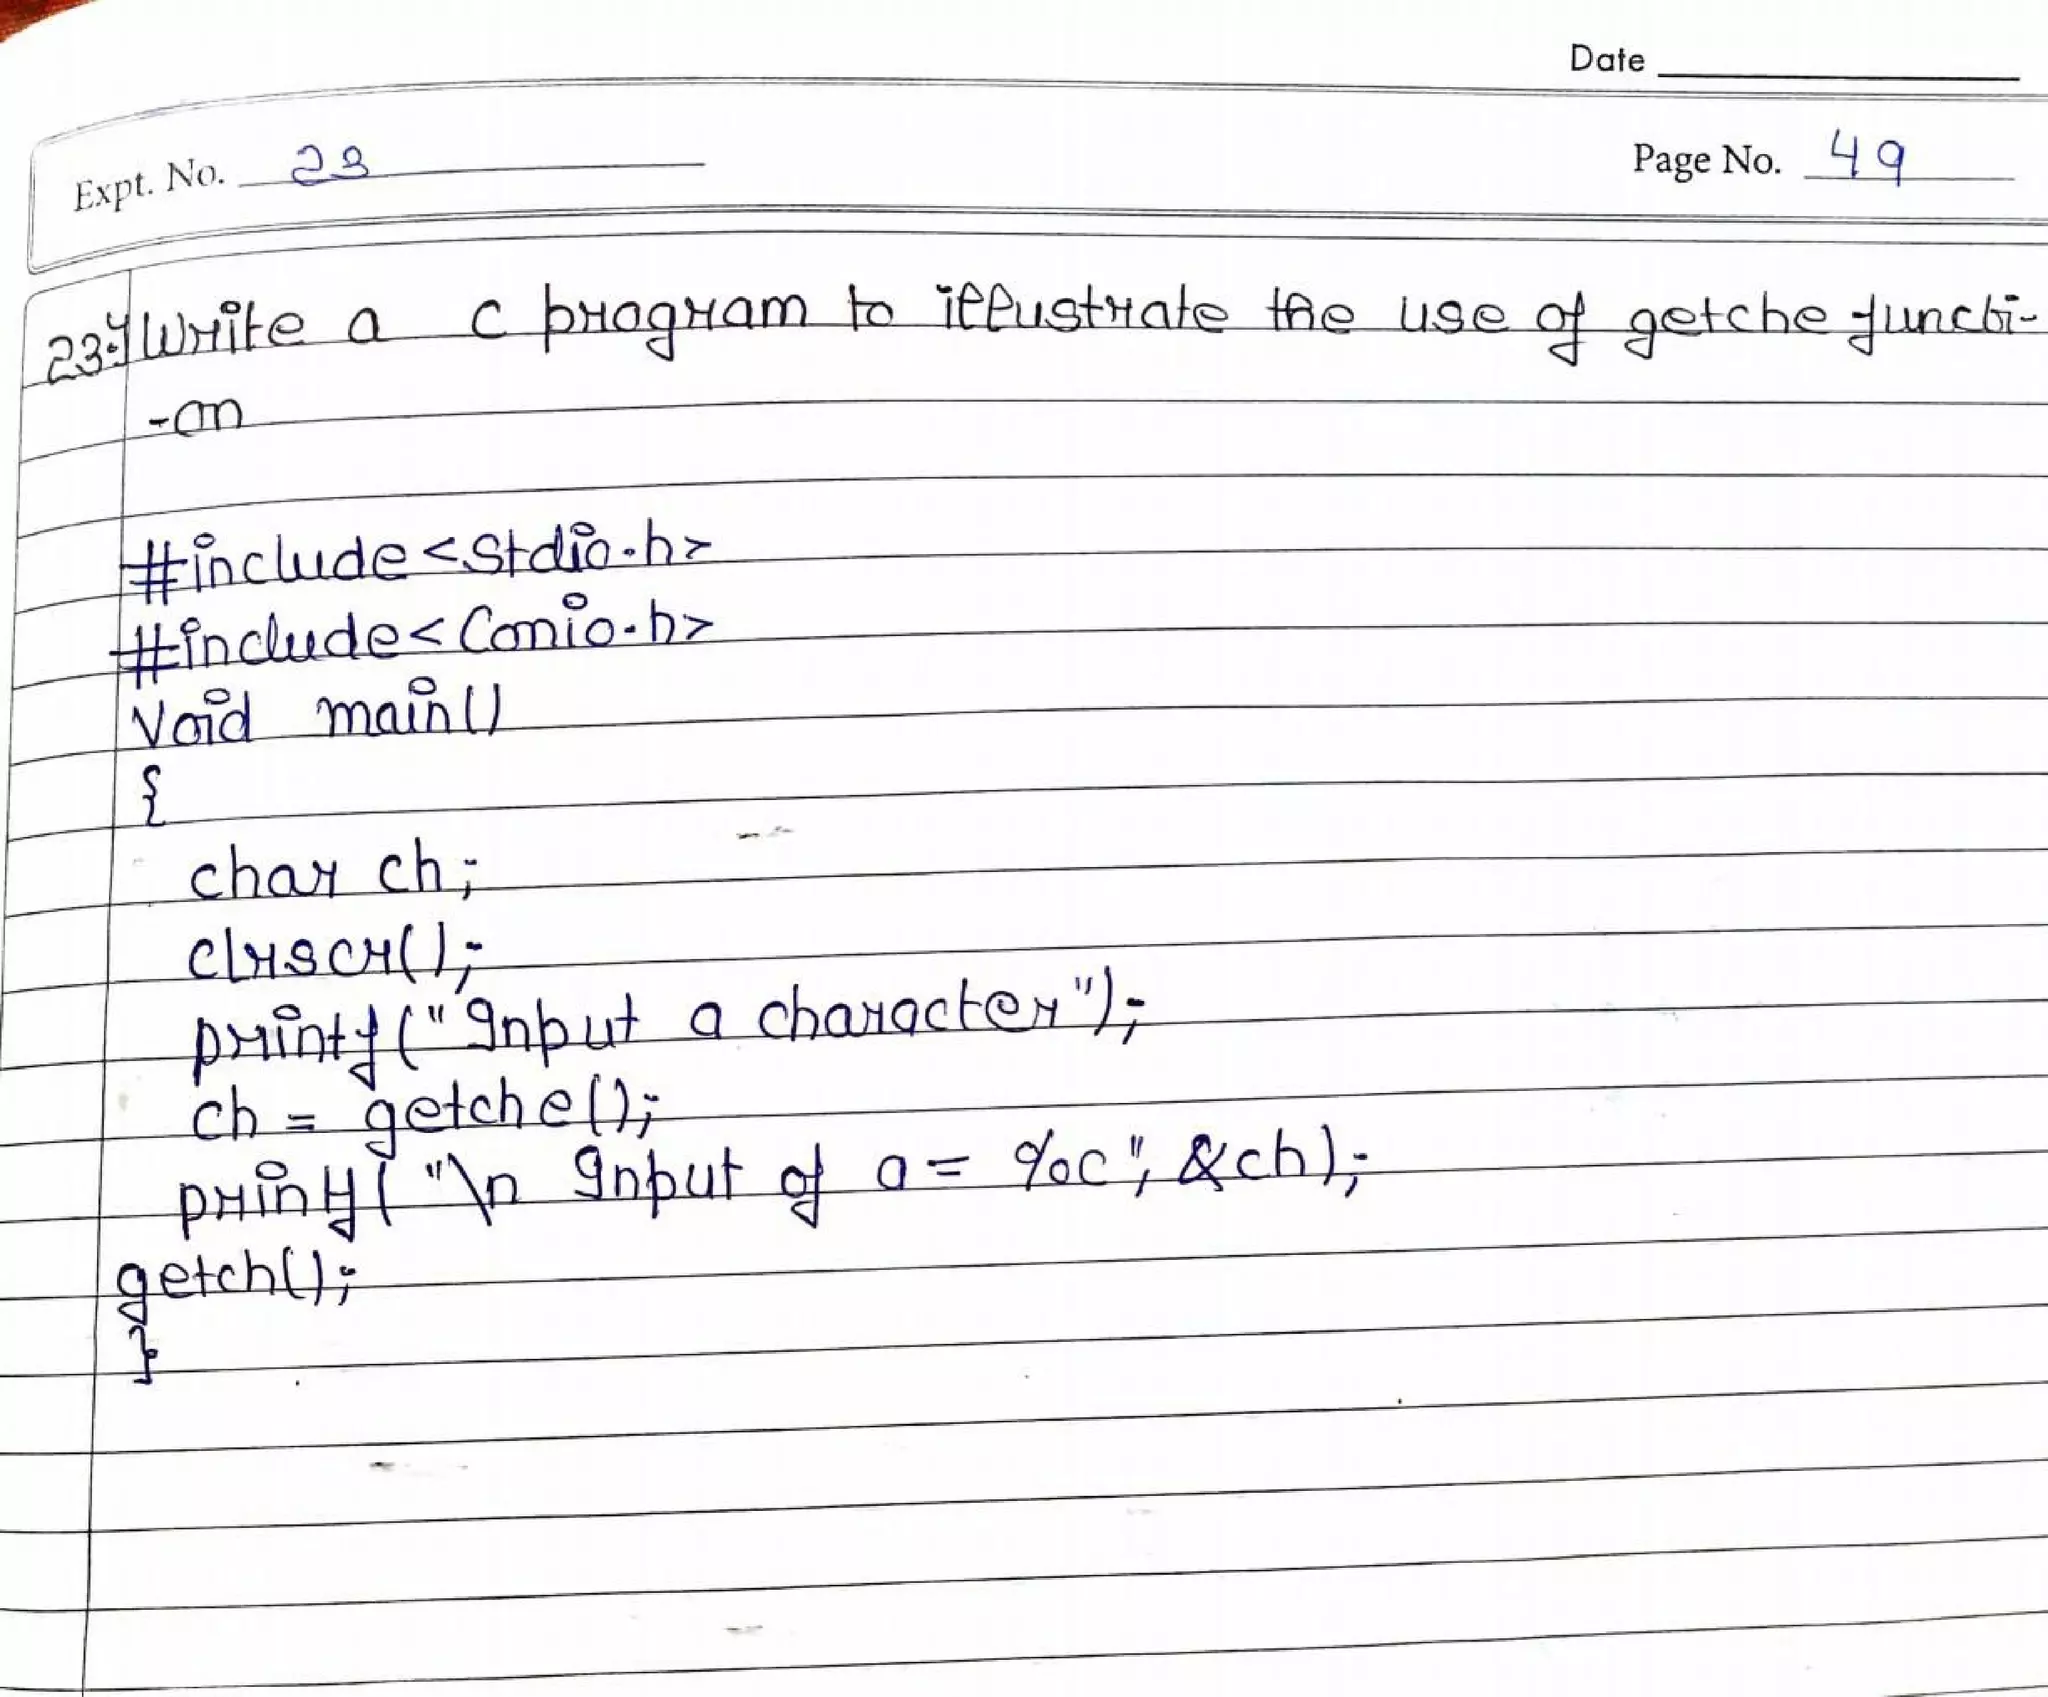 Date
Expt. No. 23
Page No. 49
23.} Write a c program to illustrate the use of getche functi-
-on
#include<Stdio.h>
#include<Conio.h>
Void main()
{
char ch;
clrscr();
printf("Input a character");
ch = getche();
printf("\n Input of a = %c", &ch);
getch();
}